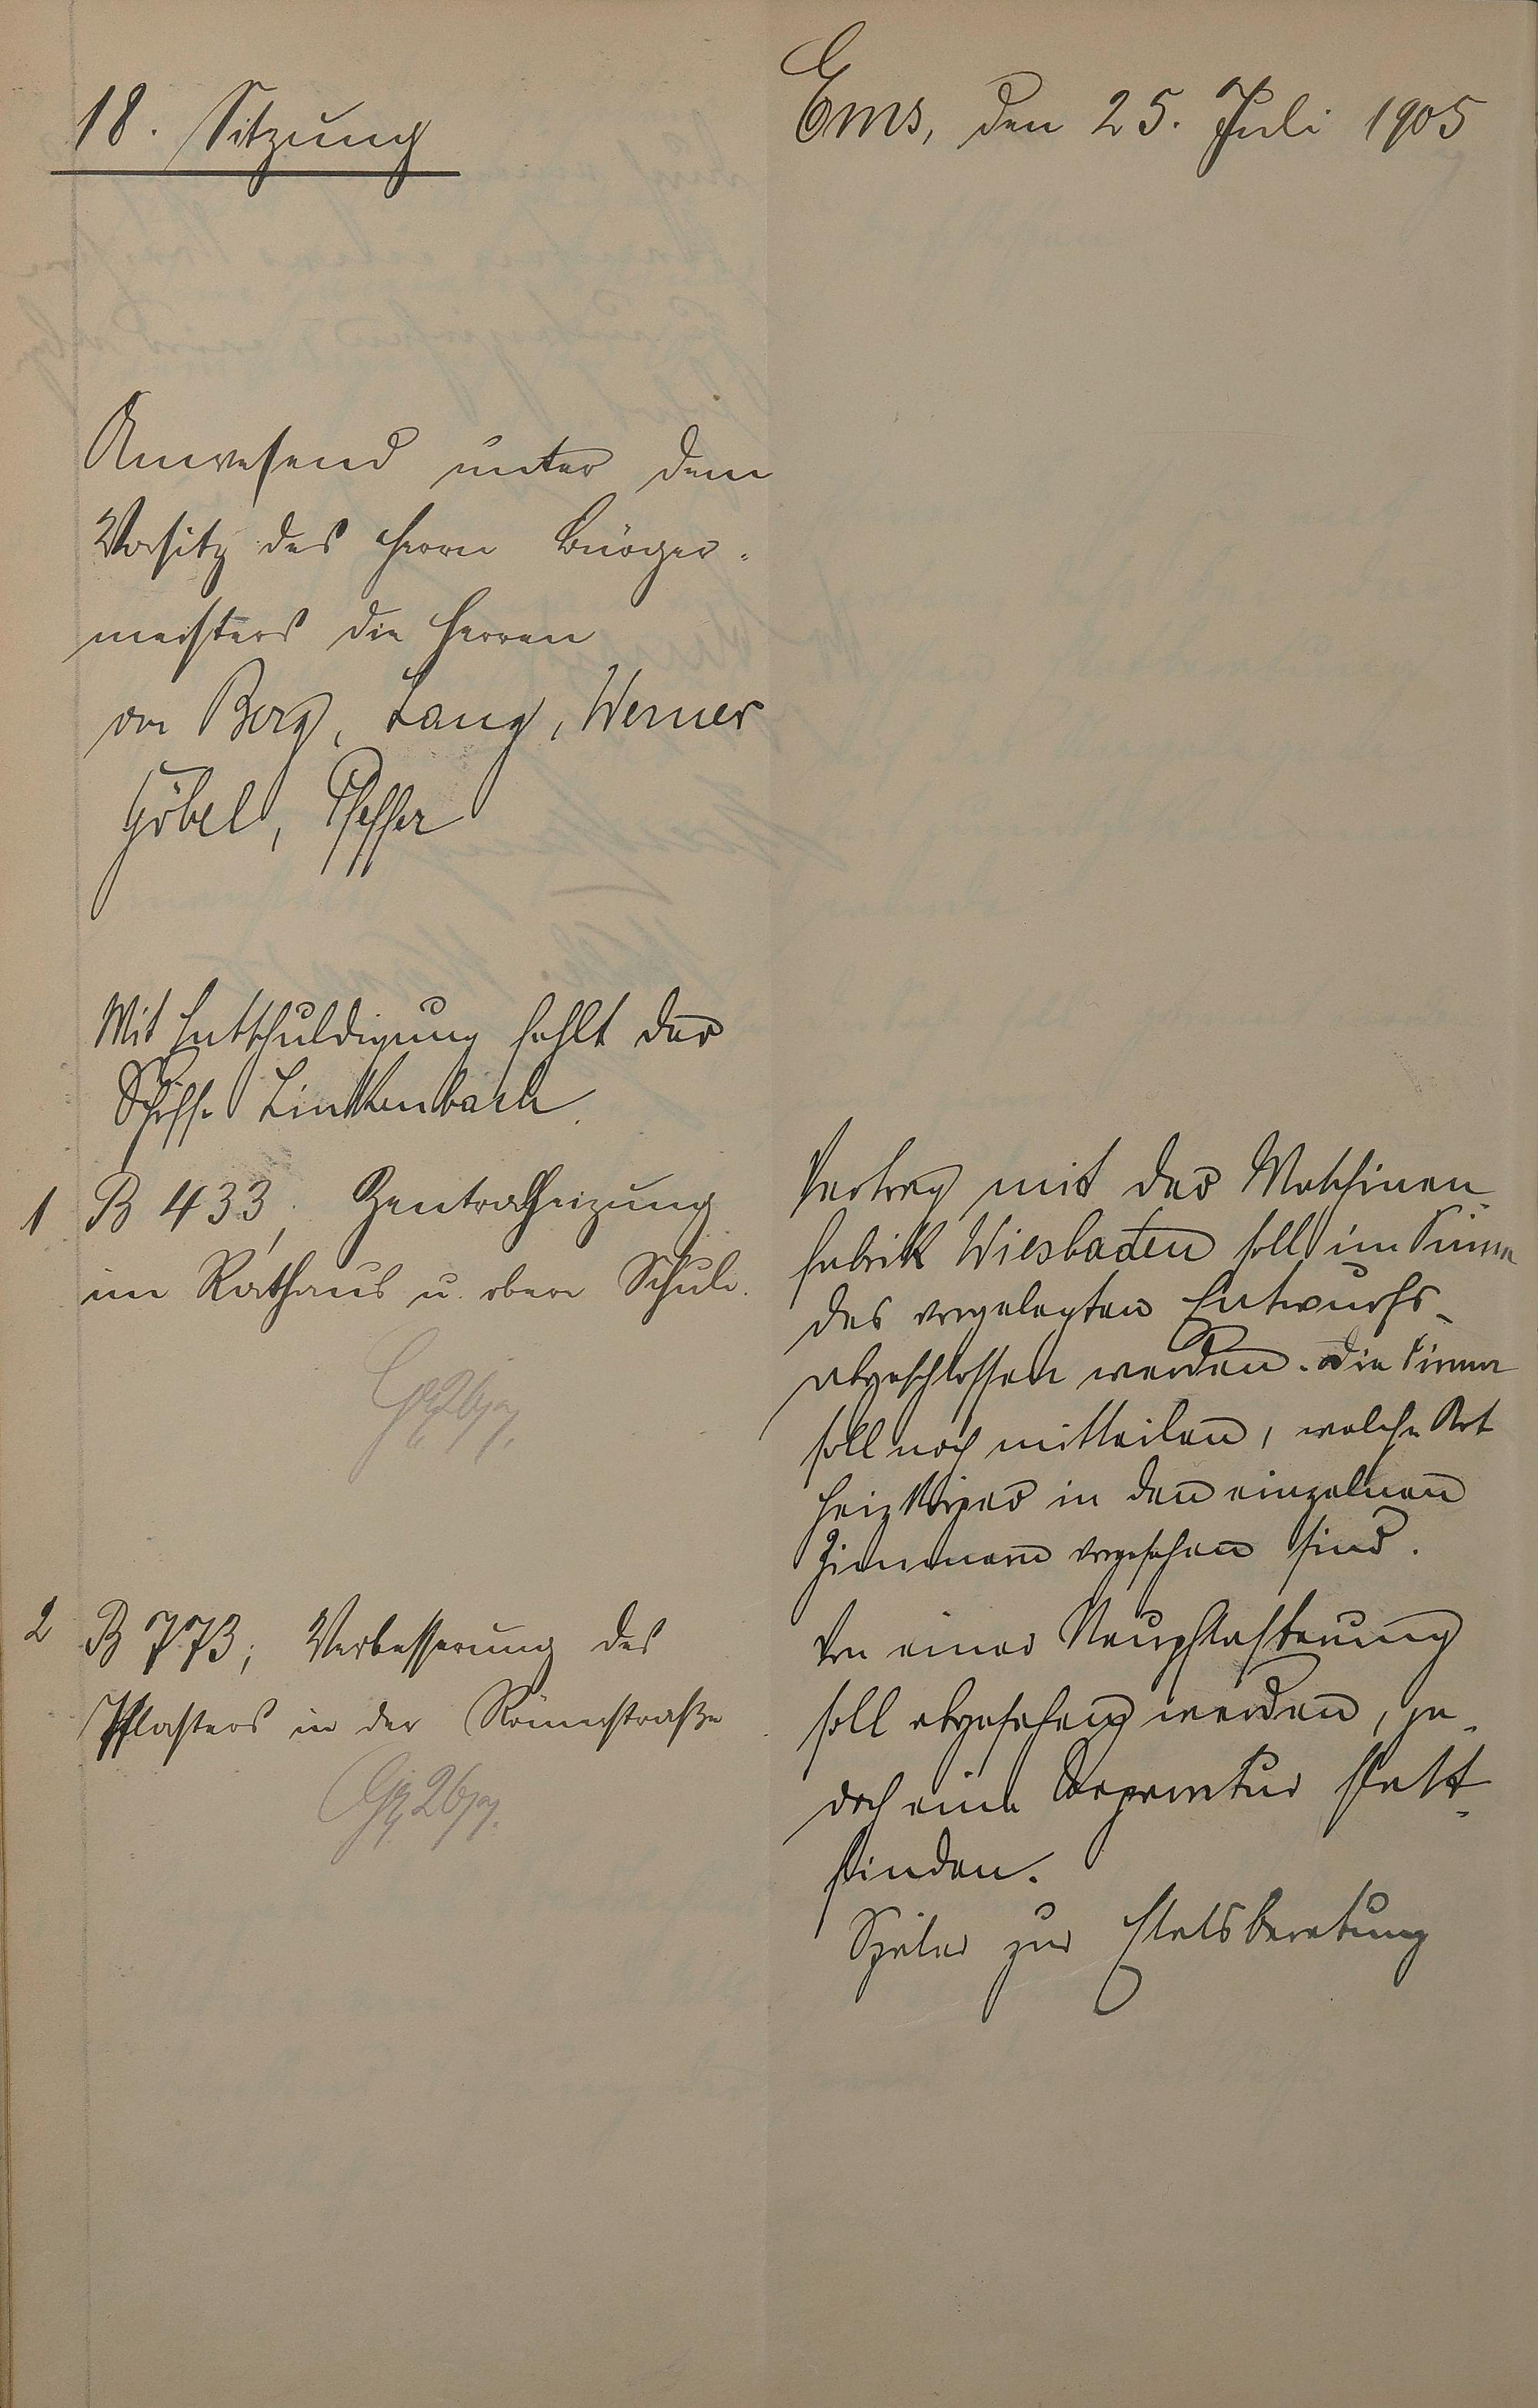 18. Sitzung
Ems, den 25. Juli 1905
Anwesend unter dem
Vorsitz des Herrn Bürger-
meisters die Herren
von Berg, Lang, Werner
Göbel, Pfeffer
Mit Entschuldigung fehlt der
Schöffe Linkenbach.
1 B 433, Zentralheizung
im Rathaus u. obere Schule.
Vertrag mit der Maschinen-
fabrik Wiesbaden soll im Sinne
des vorgelegten Entwurfs
abgeschlossen werden. Die Firma
soll noch mitteilen, welche Art
Heizkörper in den einzelnen
Zimmern vorgesehen sind.
2 B 773; Verbesserung des
Pflasters in der Römerstraße
Von einer Neupflasterung
soll abgesehen werden, je-
doch eine Reparatur statt-
finden.
Später zur Etatsberatung